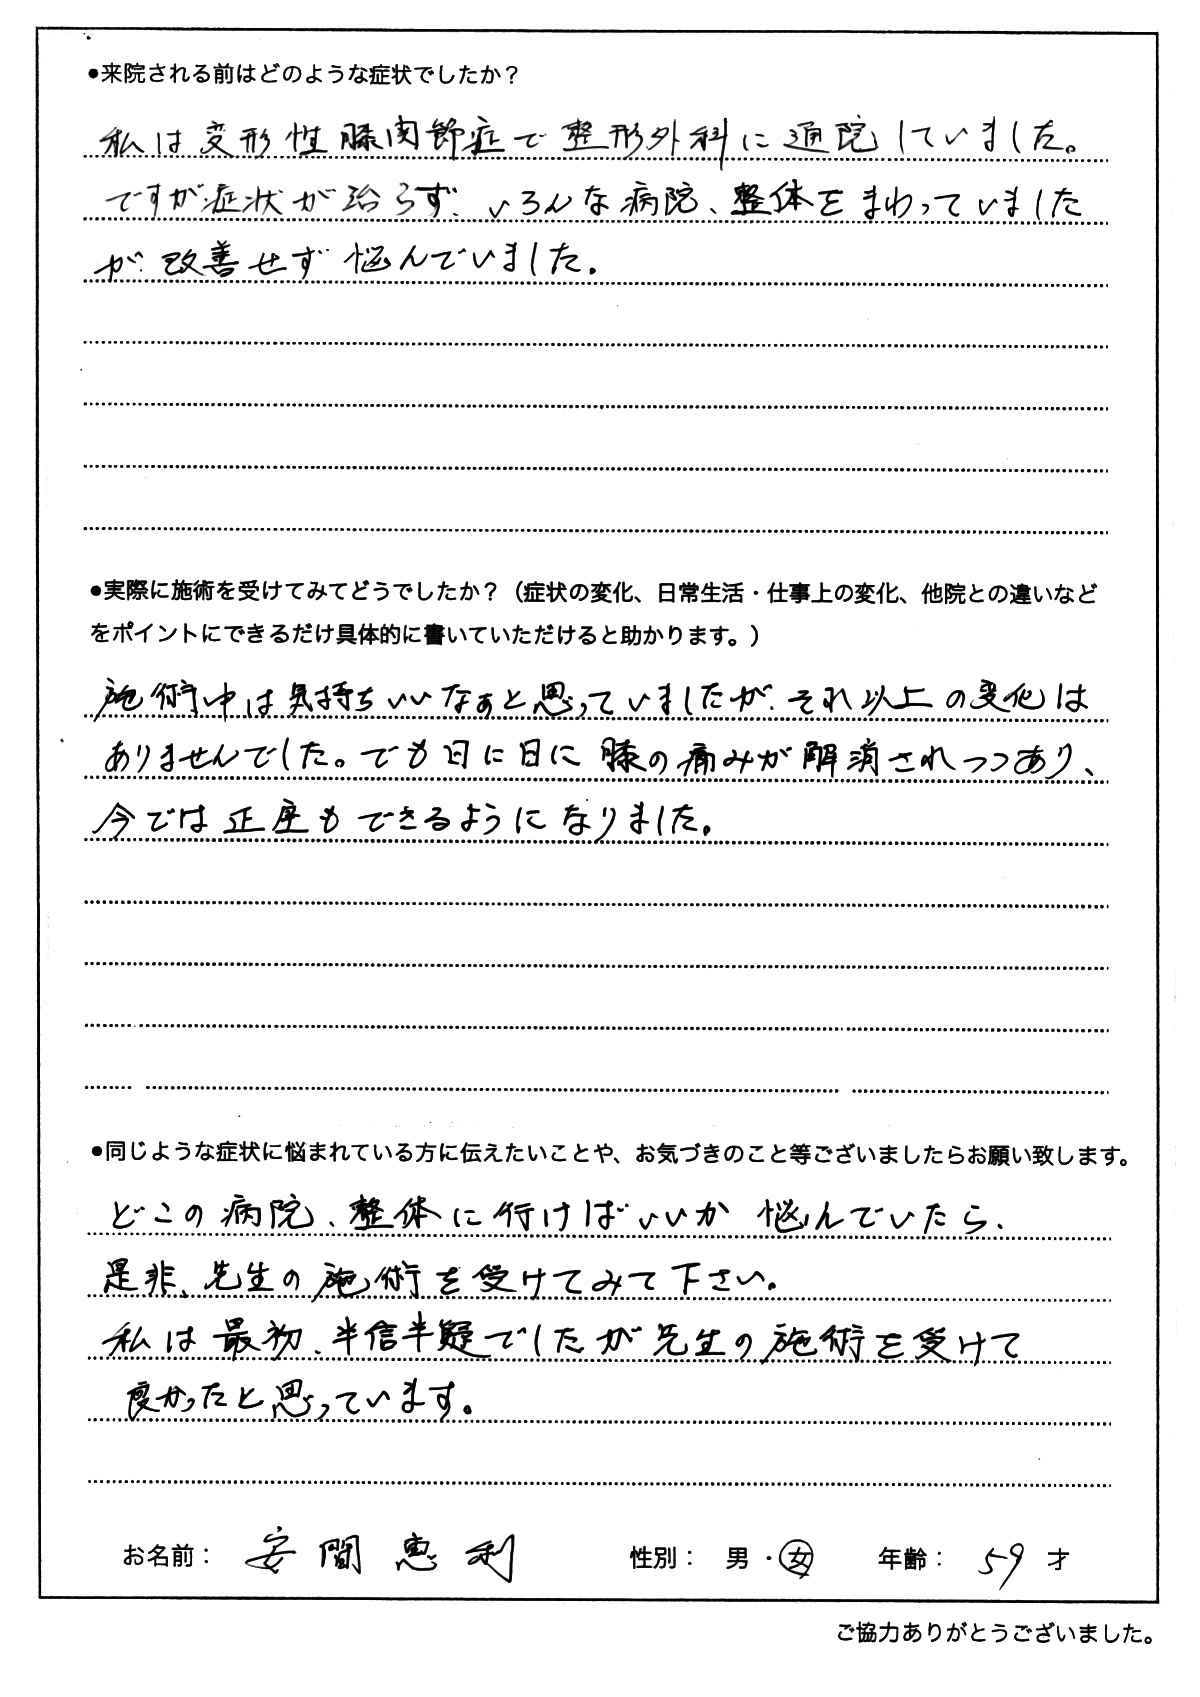 ●来院される前はどのような症状でしたか？
私は変形性膝関節症で整形外科に通院していました。
ですが症状が治らず、いろんな病院、整体をまわっていました
が、改善せず悩んでいました。
●実際に施術を受けてみてどうでしたか？（症状の変化、日常生活・仕事上の変化、他院との違いなど
をポイントにできるだけ具体的に書いていただけると助かります。）
施術中は気持ちいいなぁと思っていましたが、それ以上の変化は
ありませんでした。でも日に日に膝の痛みが解消されつつあり、
今では正座もできるようになりました。
●同じような症状に悩まれている方に伝えたいことや、お気づきのこと等ございましたらお願い致します。
どこの病院、整体に行けばいいか悩んでいたら、
是非、先生の施術を受けてみて下さい。
私は最初、半信半疑でしたが先生の施術を受けて
良かったと思っています。
お名前： 安間恵利 性別： 男・女 年齢： 59 才
ご協力ありがとうございました。